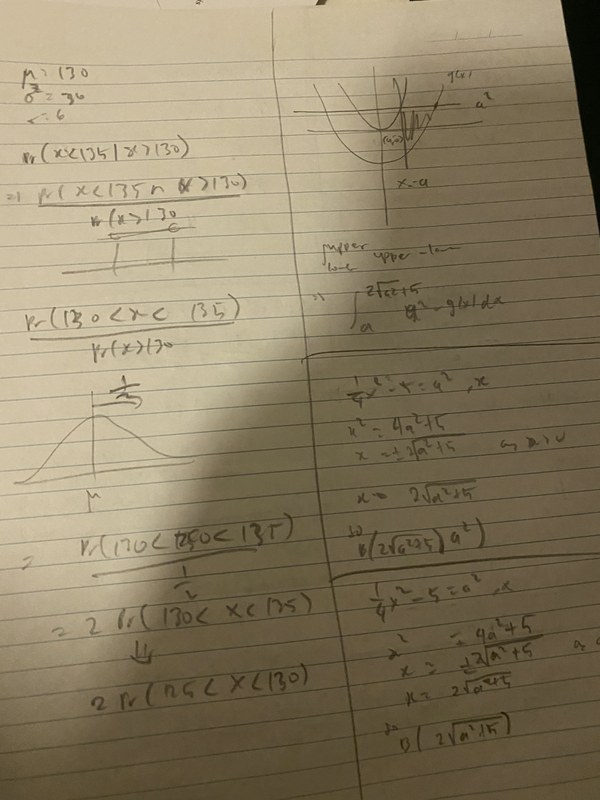 μ = 130
σ² = 36
σ = 6
Pr(x<135 | x>130)
=) Pr(x<135 ∩ x>130)
Pr(x>130
Pr(130<x< 135)
Pr(x>130
1/2
μ
= Pr(130< <135)
1/2
= 2 Pr(130< x<135)
⇓
2 Pr(125<x<130)
g(x)
a²
x=a
upper
∫ 2√a²+5
a
a² - g(x) dx
1/4 x² - 5 = a², x
x² = 4a²+5
x = ±2√a²+5 as a>0
x = 2√a²+5
so
B(2√a²+5, a²)
1/4 x² - 5 = a², x
x² = 4a²+5
x = ±2√a²+5
x = 2√a²+5
so
B(2√a²+5)